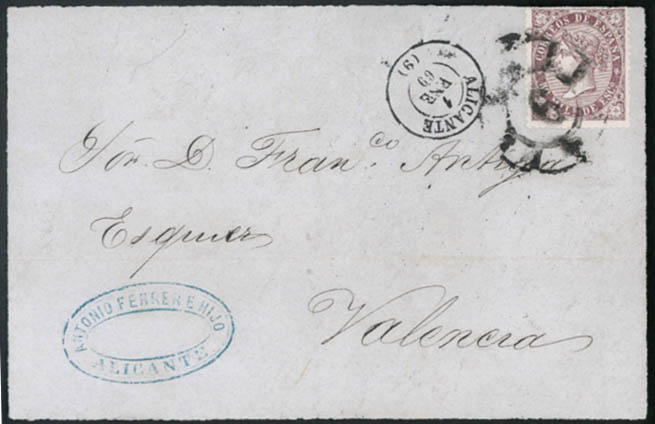 CORREOS DE ESPAÑA
MIL. DE ESC.
ALICANTE
1 ENE 69
(9)
Sór. D. Fran.co Antiga
Esquier
Valencia
ANTONIO FERRER E HIJO
ALICANTE